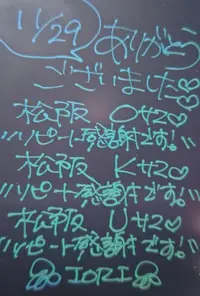 11/29
ありがとう
ございました♡♡
松阪 Oサン♡
リピート感謝です!
松阪 Kサン♡
リピート感謝です!
松阪 Uサン♡
リピート感謝です!
IORI